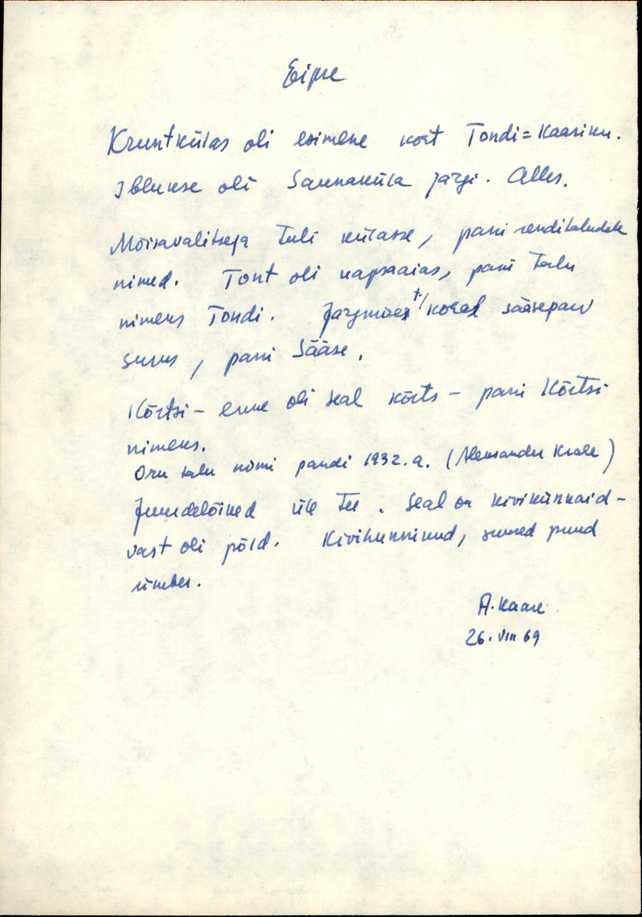 Eipre
Kruntkülas oli esimene kort Tondi=Kaariku.
oli Saunaküla järgi. Alles.
Mõisavalitseja tuli külasse, pani renditaludele
nimed. Tont oli kapsaaias, pani talu
nimeks Tondi. sääseparv
suus, pani Sääse.
Kõrtsi - enne oli seal kõrts - pani Kõrtsi
nimeks.
Oru talu nimi pandi 1932. a. (Aleksander Kaare)
Juurdelõiked üle tee. Seal on kivikünkaid -
vast oli põld. Kivihunnikud, suured puud
ümber.
A. Kaare
26. VIII 69